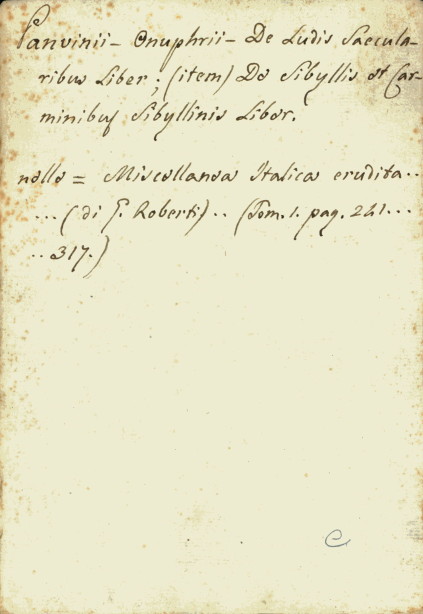 Panvinii - Onuphrii - De Ludis Saecula-
ribus Liber; (item) De Sibyllis et Car-
minibus Sibyllinis Liber.
nelle = Miscellanea Italica erudita..
...(di G. Roberti).. (Tom. 1. pag. 241...
..317.)
C